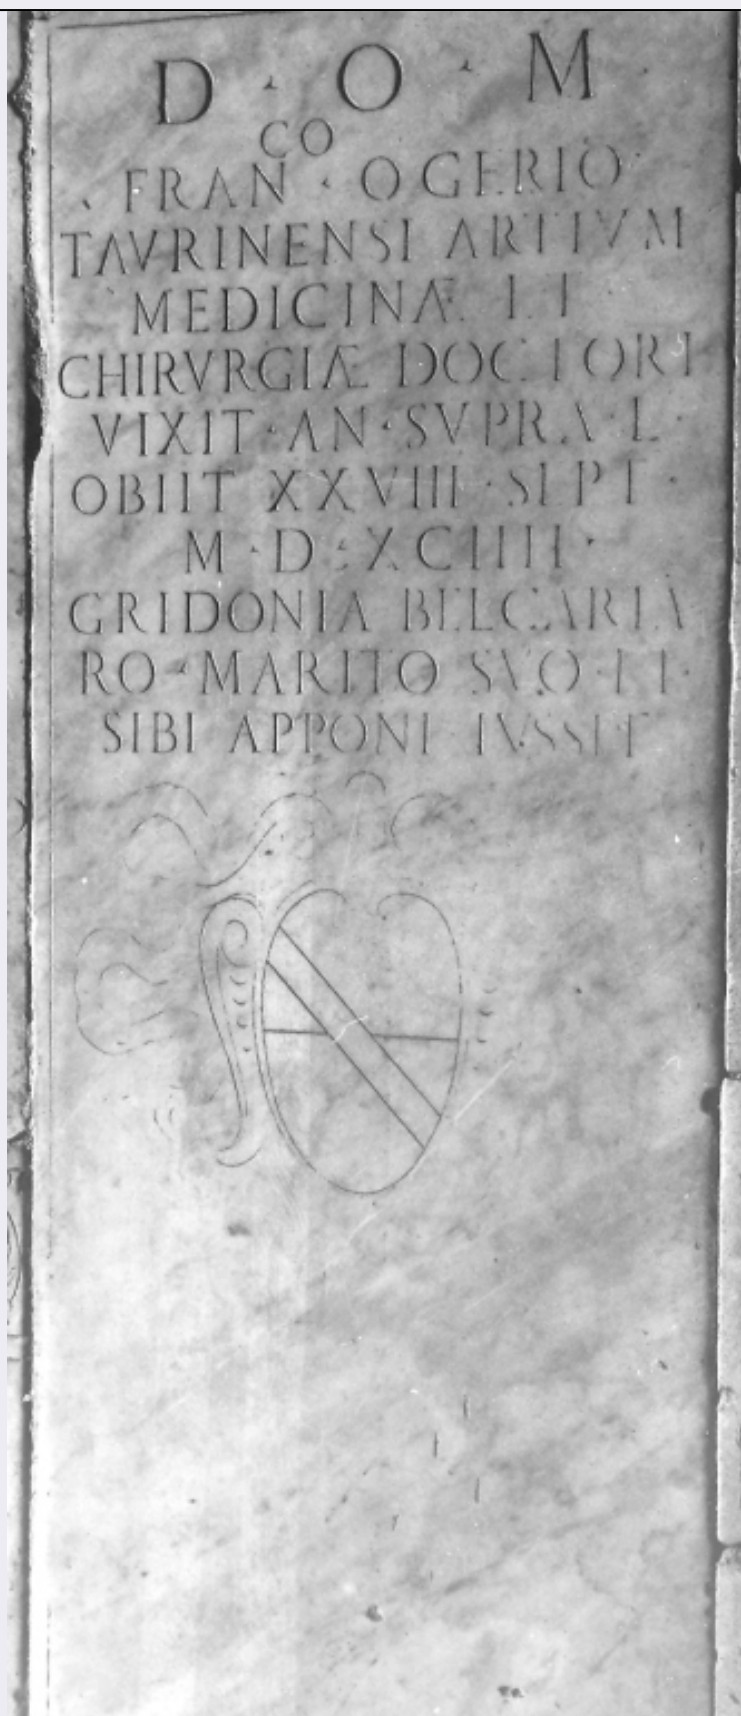 D · O · M ·
CO
· FRAN · OGERIO
TAVRINENSI ARTIVM
MEDICINÆ ET
CHIRVRGIÆ DOCTORI
VIXIT · AN · SVPRA · L ·
OBIIT XXVIII · SEPT ·
M · D · XCIIII ·
GRIDONIA BELCARIA
RO · MARITO SVO · ET ·
SIBI APPONI IVSSIT